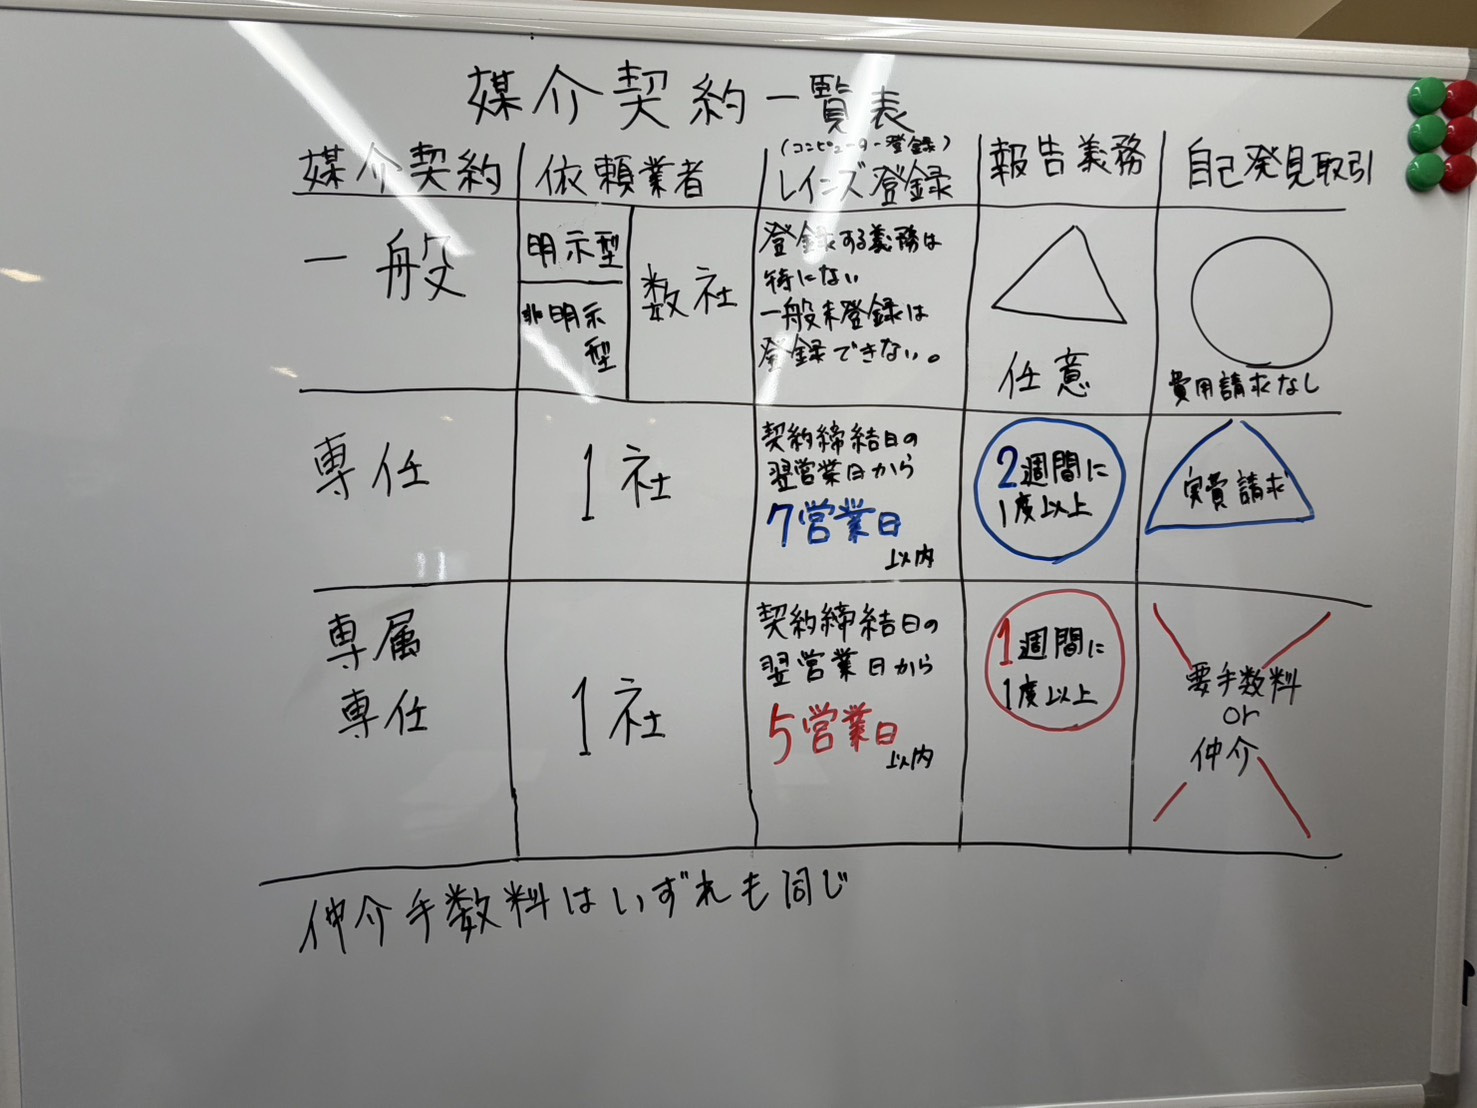 媒介契約一覧表
媒介契約
依頼業者
(コンピューター登録)
レインズ登録
報告義務
自己発見取引
一般
明示型
非明示
型
数社
登録する義務は
特にない
一般未登録は
登録できない。
任意
費用請求なし
専任
1社
契約締結日の
翌営業日から
7営業日
以内
2週間に
1度以上
実費請求
専属
専任
1社
契約締結日の
翌営業日から
5営業日
以内
1週間に
1度以上
要手数料
or
仲介
仲介手数料はいずれも同じ